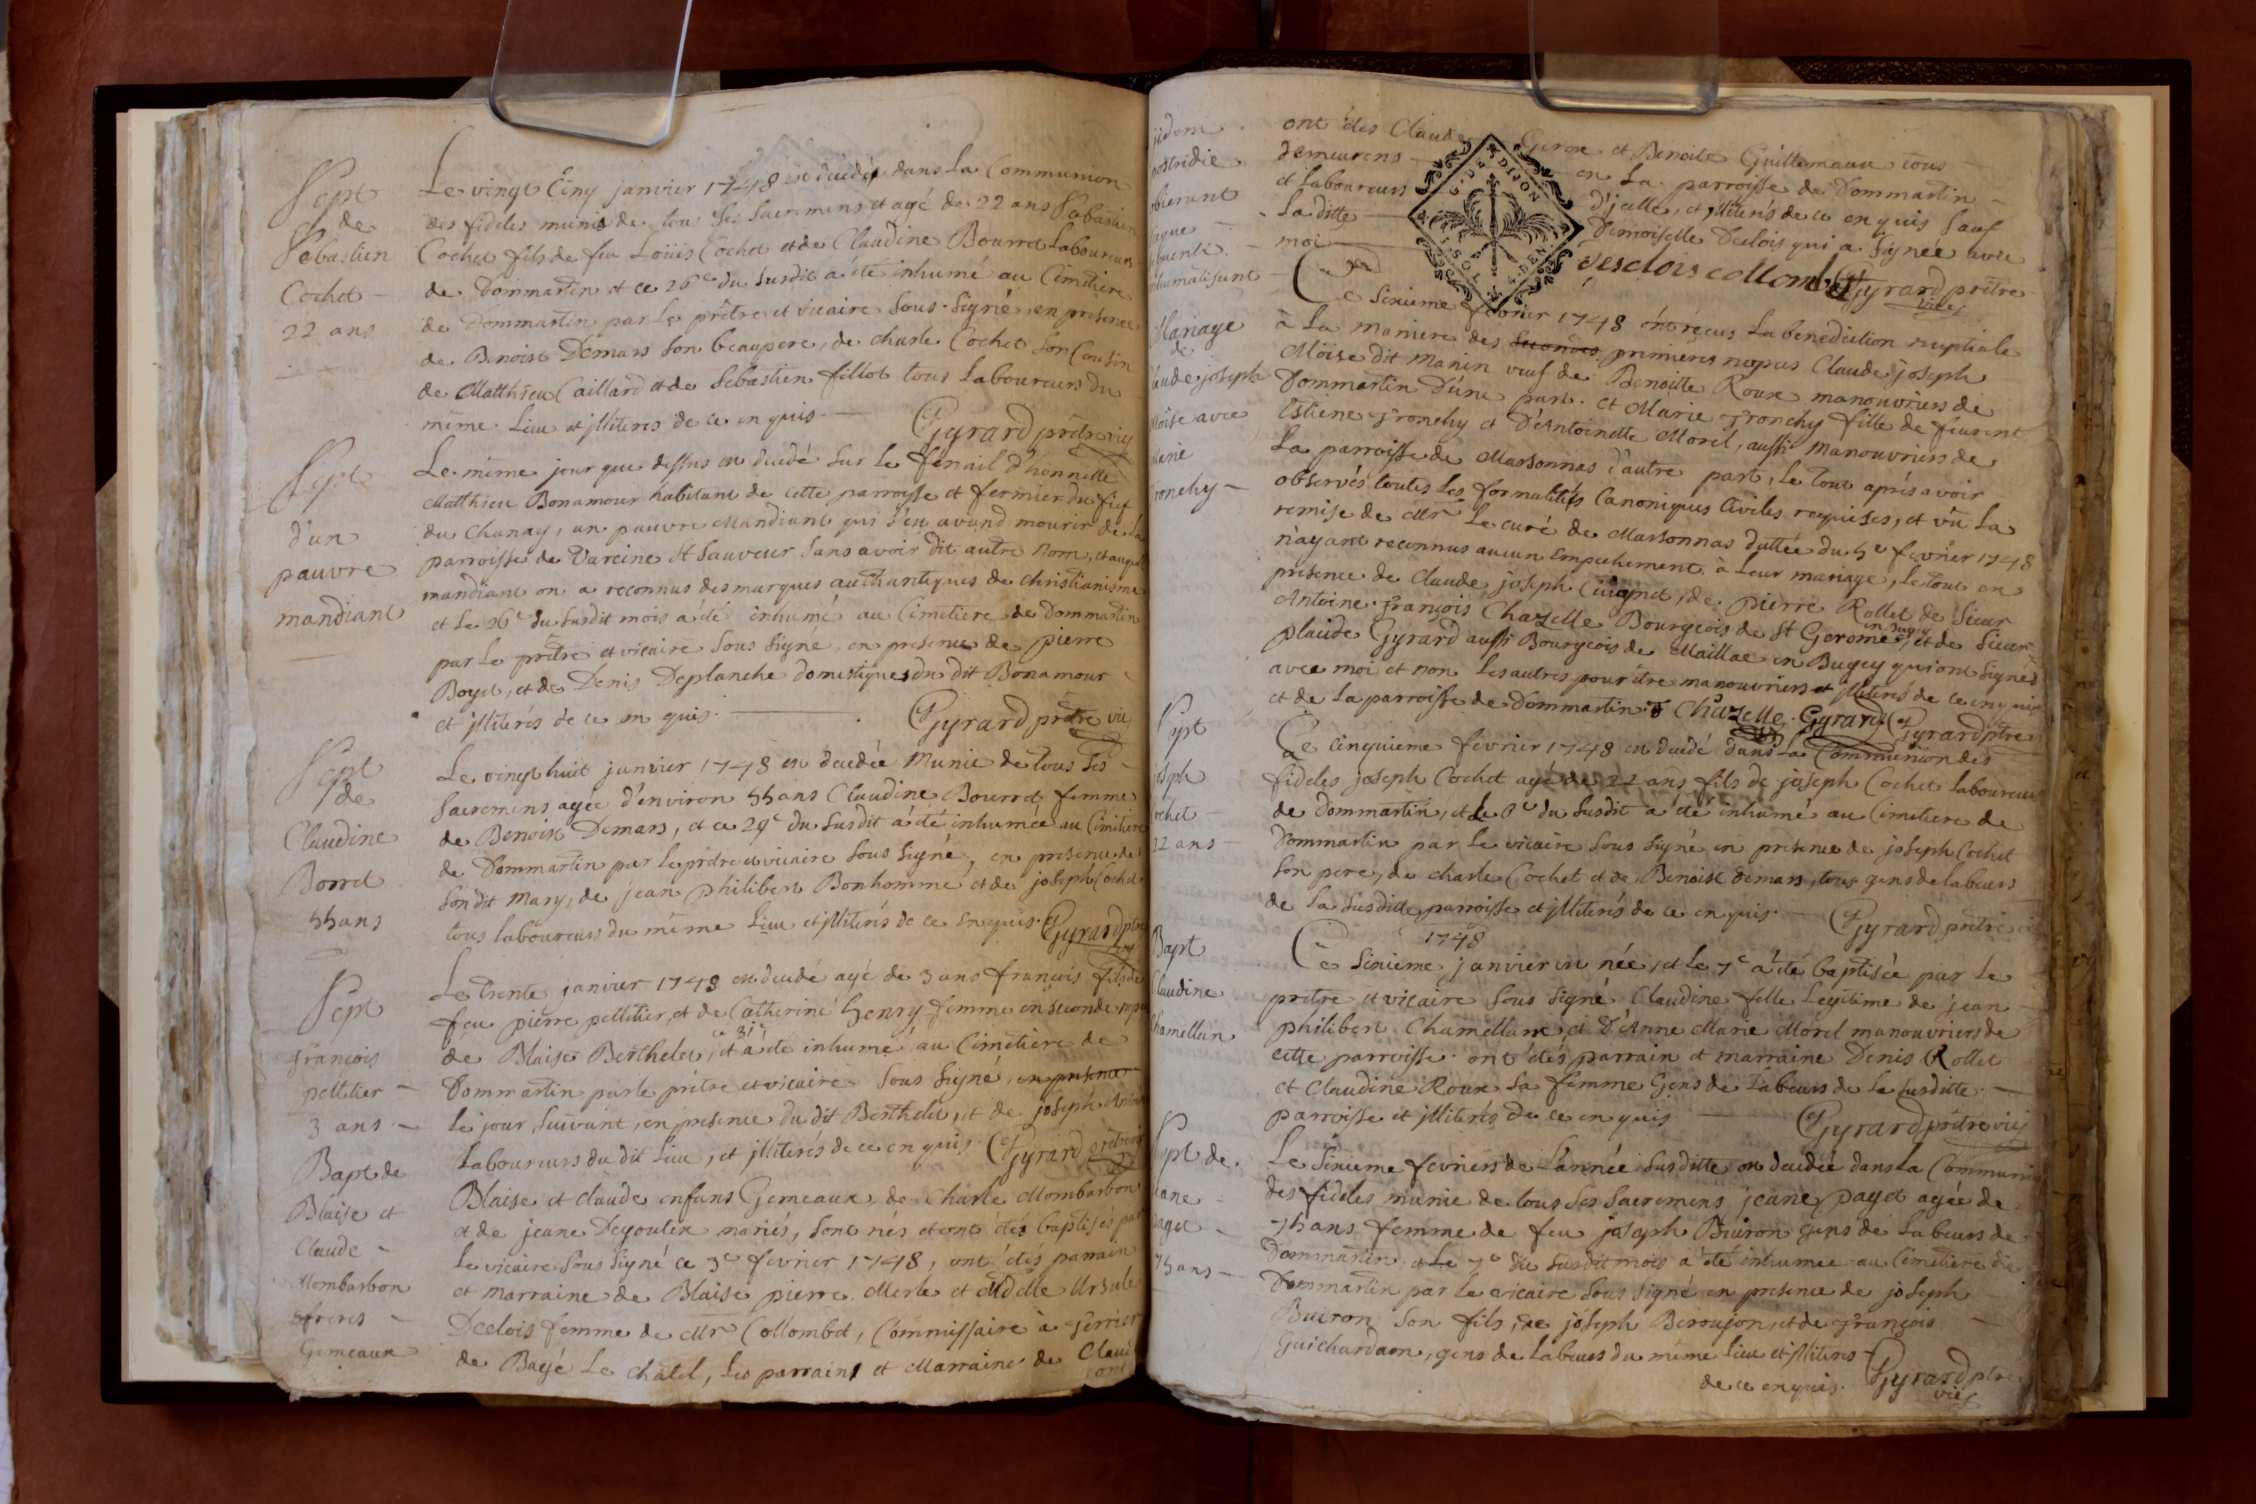 Sept
de
Sebastien
Cochet
22 ans
Le vingt Cinq janvier 1748 est decedé dans La Communion
des fideles munis de tous ses Sacremens et agé de 22 ans Sebastien
Cochet fils de feu Loüis Cochet et de Claudine Bourret Laboureurs
de Dommartin et ce 26e du susdit a été inhumé au Cimetiere
de Dommartin par le prêtre et vicaire sous-signé, en presence
de Benoist Demars son beaupere, de charle Cochet son Cousin
de Matthieu Caillard et de Sebastien fillot tous Laboureurs du
même Lieu et jlliterés de ce enquis. Gyrard prêtre vic
Sept
d'un
pauvre
mandiant
Le même jour que dessus est decedé sur le fenail d'honnette
Matthieu Bonamour habitant de cette parroisse et fermier du fief
du Chanay, un pauvre Mandiant qui s'est avand mourir de la
parroisse de Vareine St Sauveur sans avoir dit autre nom, et auquel
mandiant on a reconnus des marques authantiques de christianisme
et le 26e du susdit mois a été inhumé au Cimetiere de Dommartin
par le prêtre et vicaire sous signé, en presence de pierre
Boyet, et de Denis Deplanche domestiques du dit Bonamour
et jlliterés de ce enquis. Gyrard prêtre vic
Sept
de
Claudine
Borret
55 ans
Le vingt huit janvier 1748 est decedée Munie de tous ses
Sacremens agée d'environ 55 ans Claudine Bourret femme
de Benoist Demars, et ce 29e du susdit a été inhumée au Cimetiere
de Dommartin par le prêtre et vicaire sous signé, en presence de
son dit Mary, de jean philibert Bonhomme et de joseph Cochet
tous laboureurs du même Lieu et jlliterés de ce enquis. Gyrard ptre
Sept
françois
pelletier
3 ans
Le Trente janvier 1748 est decedé agé de 3 ans françois fils de
feu pierre pelletier, et de Catherine henry femme en seconde nopce
ce 31e
de Blaise Berthelet, et a été inhumé au Cimetiere de
Dommartin par le prêtre et vicaire sous signé, en presence
le jour suivant, en presence du dit Berthelet, et de joseph
Laboureurs du dit Lieu, et jlliterés de ce enquis. Gyrard
Bapt de
Blaise et
Claude
Mombarbon
freres
Gemeaux
Blaise et claude enfans Gemeaux de Charle Mombarbon
et de jeane Degoulex mariés, sont nés et ont étés baptisés par
le vicaire sous signé ce 3e fevrier 1748, ont étés parrain
et marraine de Blaise pierre Merle et Mdelle Ursule
Declois femme de Mr Collombet, Commissaire à Terrier
de Bagé le chatel, les parrains et Marraine de Claude
ont
jidem
postridie
obierunt
ont étés Claude Geron et Benoite Guillemaux tous
demeurens en La parroisse de Dommartin
et Laboureurs d'jcelle, et jlliterés de ce enquis sauf
La ditte Demoiselle Declois qui a signée avec
moi
G. DE DIJON
desclois collombet Gyrard prêtre
vic
Mariage
de
Claude joseph
Moise avec
Marie
Tronchy
Ce sixieme fevrier 1748 ont reçus la benediction nuptiale
à la maniere des secondes premieres nopces Claude joseph
Moise dit Manin veuf de Benoitte Roux manouvriers de
Dommartin d'une part. et Marie Tronchy fille de feurent
Estiene Tronchy et d'Antoinette Morel, aussi Manouvriers de
La parroisse de Marsonnas d'autre part, le tout aprés avoir
observés toutes les formalités Canoniques Civiles requises, et vû la
remise de Mr Le curé de Marsonnas dattée du 5e fevrier 1748
n'ayant reconnus aucun Empechement à leur mariage, le tout en
presence de Claude joseph Cuignet, de pierre Rollet de Sieur
Antoine françois Chazelle Bourgeois de St Gerome en bugey, et de Sieur
plaude Gyrard aussi Bourgeois de Maillac en Bugey qui ont signés
avec moi et non les autres pour être manouvriers et jlliterés de ce enquis
et de la parroisse de Dommartin. Chazelle. Gyrard Gyrard ptre
Sept
joseph
Cochet
22 ans
Ce cinquieme fevrier 1748 est decedé dans La Communion des
fideles joseph Cochet agé de 22 ans fils de joseph Cochet laboureur
de Dommartin, et le 6e du susdit a été inhumé au Cimetiere de
Dommartin par le vicaire sous signé en presence de joseph Cochet
son pere, de charle Cochet et de Benoist demars, tous gens de labeurs
de La susditte parroisse et jlliterés de ce enquis. Gyrard prêtre
Bapt
Claudine
Chamellan
1748
Ce sixieme janvier est née, et le 7e a été baptisée par le
prêtre et vicaire sous signé Claudine fille legitime de jean
philibert Chamellan, et d'Anne Marie Morel manouvriers de
cette parroisse. ont étés parrain et marraine Denis Rollet
et Claudine Roux sa femme Gens de Labeurs de la susditte
parroisse et jlliterés de ce enquis Gyrard prêtre vic
Sept de
jeane
paget
75 ans
Le sixieme fevriers de l'année susditte est decedée dans la Communion
des fideles munie de tous ses Sacremens jeane paget agée de
75 ans femme de feu joseph Buiron gens de Labeurs de
Dommartin, et le 7e du susdit mois a été inhumée au Cimetiere de
Dommartin par le vicaire sous signé en presence de joseph
Buiron son fils, de joseph Beroujon, et de françois
Guichardaon, gens de labeurs du même lieu et jlliterés
de ce enquis. Gyrard ptre
vic